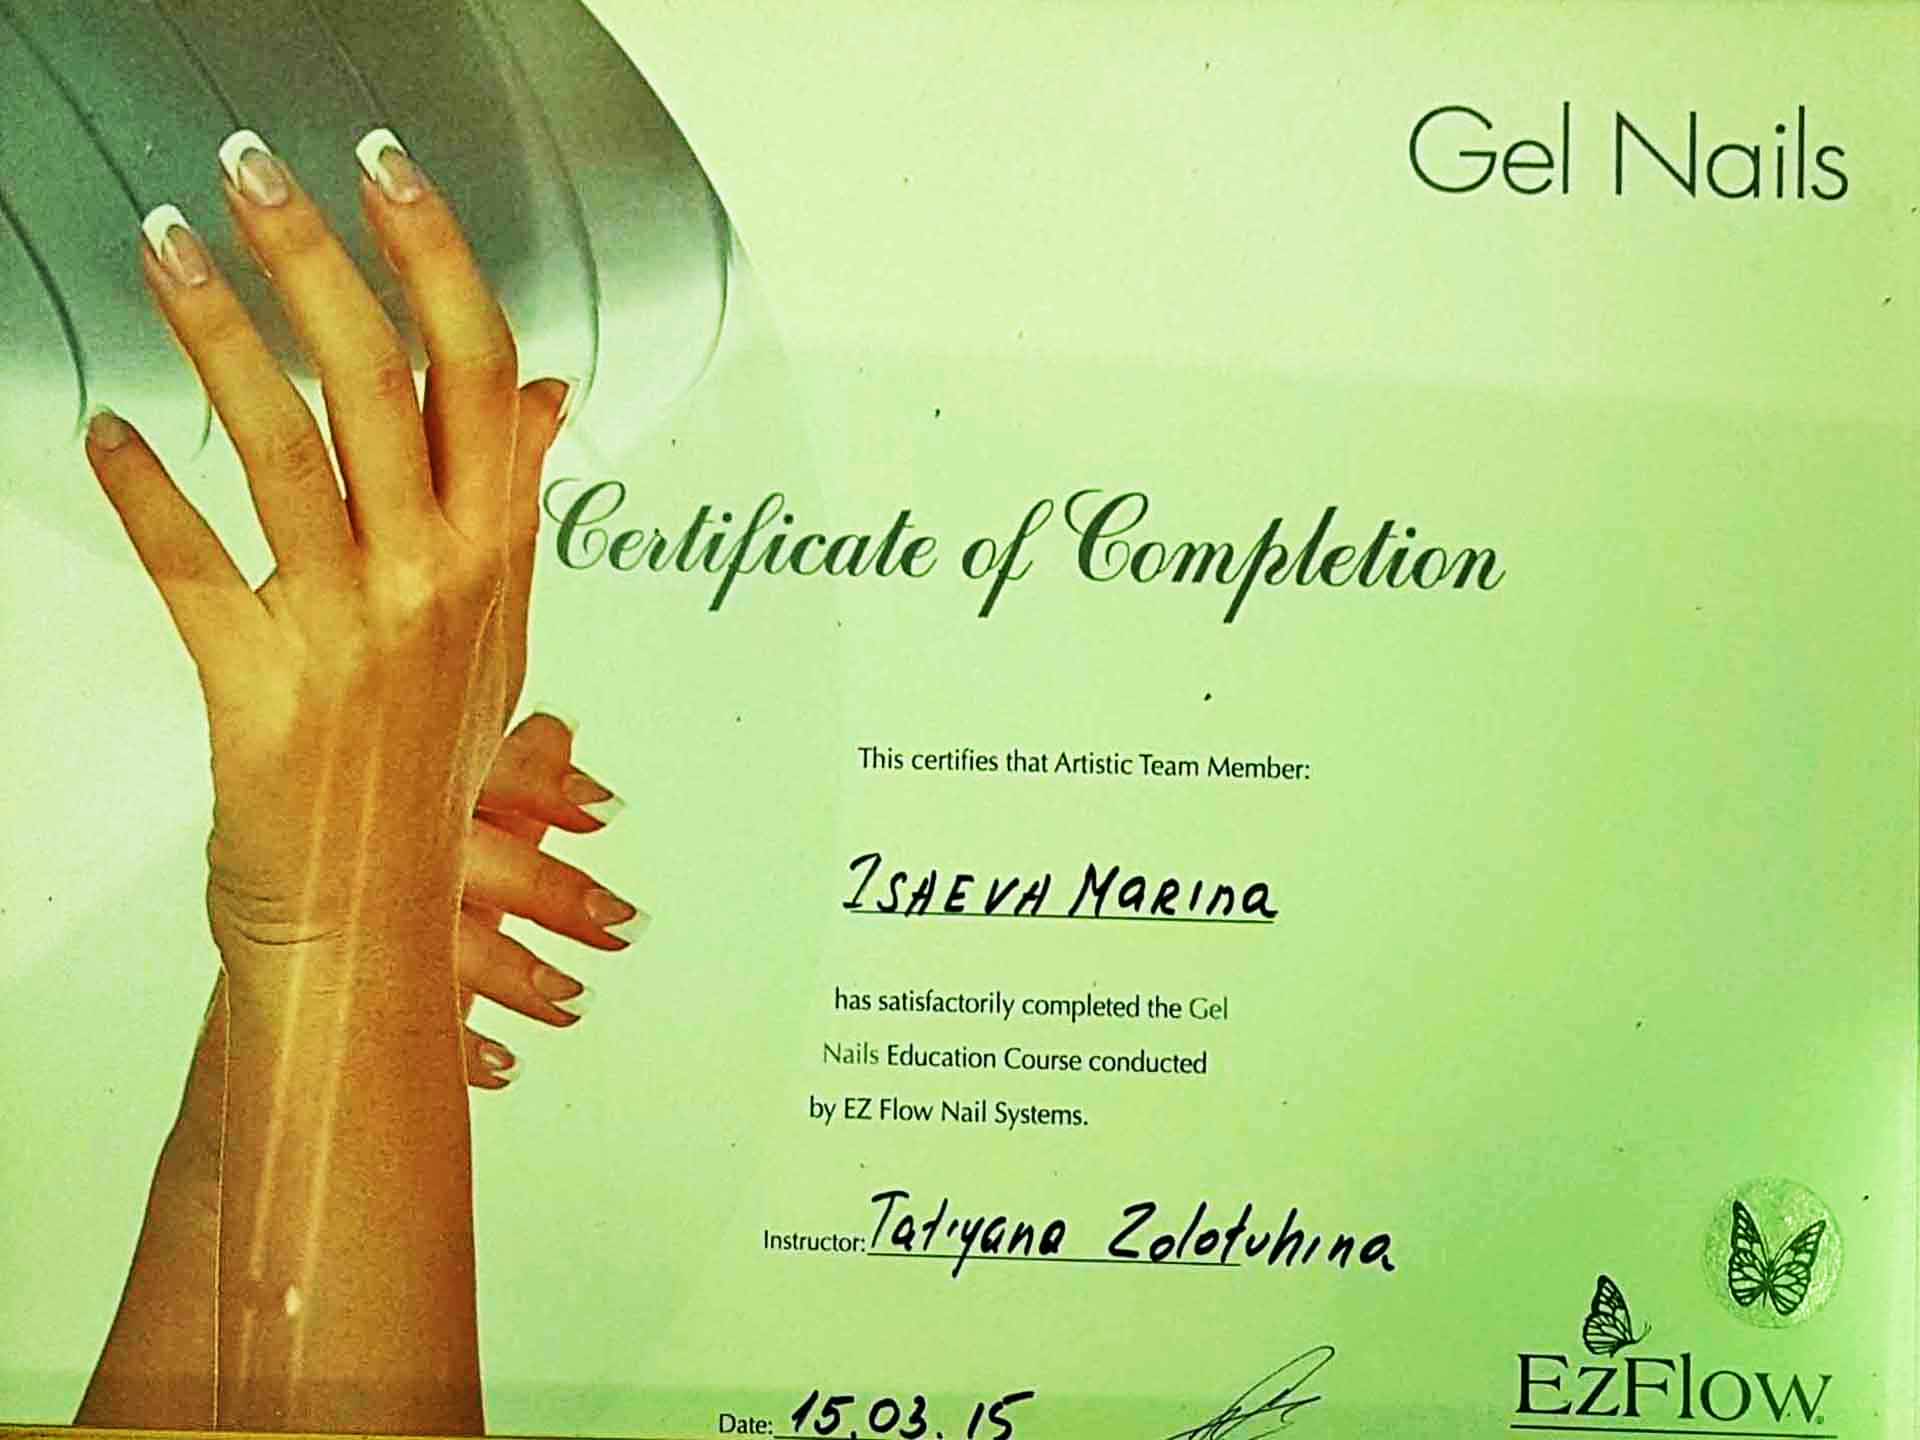 Gel Nails
Certificate of Completion
This certifies that Artistic Team Member:
ISAEVA MARINA
has satisfactorily completed the Gel
Nails Education Course conducted
by EZ Flow Nail Systems.
Instructor: Tatiyana Zolotuhina
Date: 15.03.15
EzFlow®